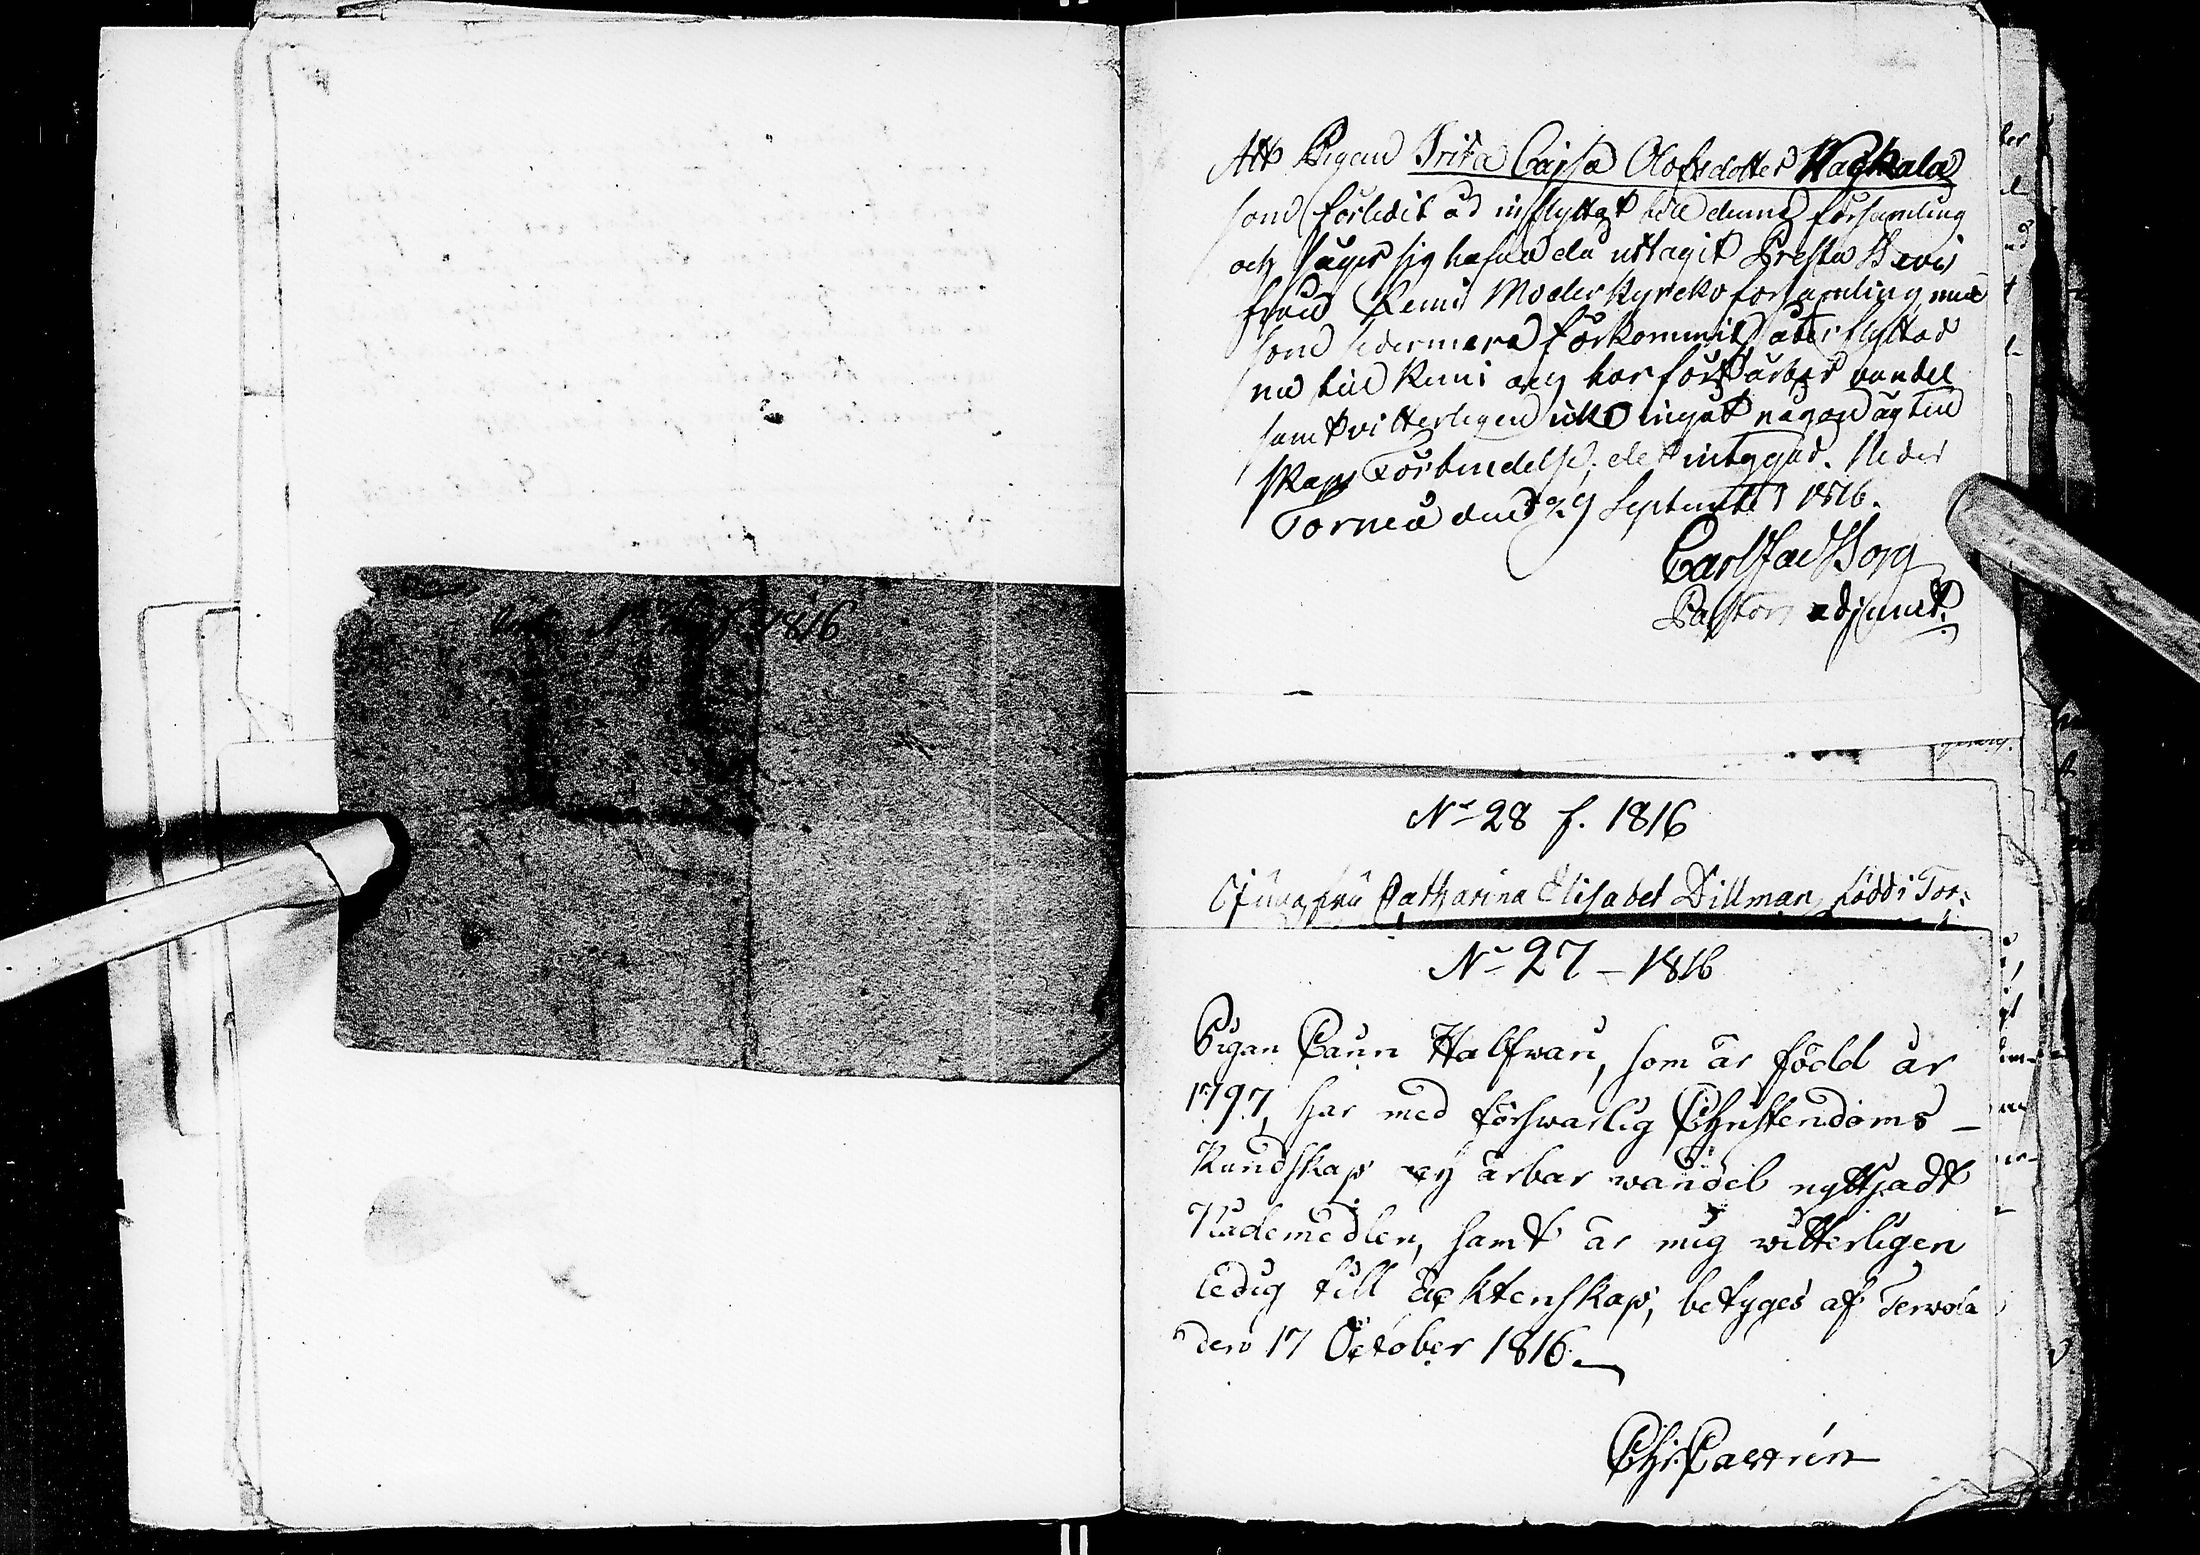 1816
Att Pigan Brita Cajsa Olofsdotter Waghala
som förledit år inflyttat till denna församling
och säger sig hafwa då uttagit Prestabevis
från Kemi Moderkyrko församling men
som sedermera förkommit, återflyttar
nu till Kemi och har fört ärbar vandel
samt vitterligen icke ingåt någon ägten
skaps Förbindelse, det intygad. Neder
Torneå den 29 September 1816.
Carl Jac Borg
Pastors adjunct.
No 28 f. 1816
Jungfru Catharina Elisabet Dillman, född i Tor:
No 27 – 1816
Pigan Caun Halfwari, som är född år
1797, har med förswarlig Christendoms –
Kundskap och ärbar wandel nyttjadt
Nådemedlen, samt är mig witterligen
ledig till äcktenskap, betyges af Terwola
den 17 October 1816.
Chr. Castrén